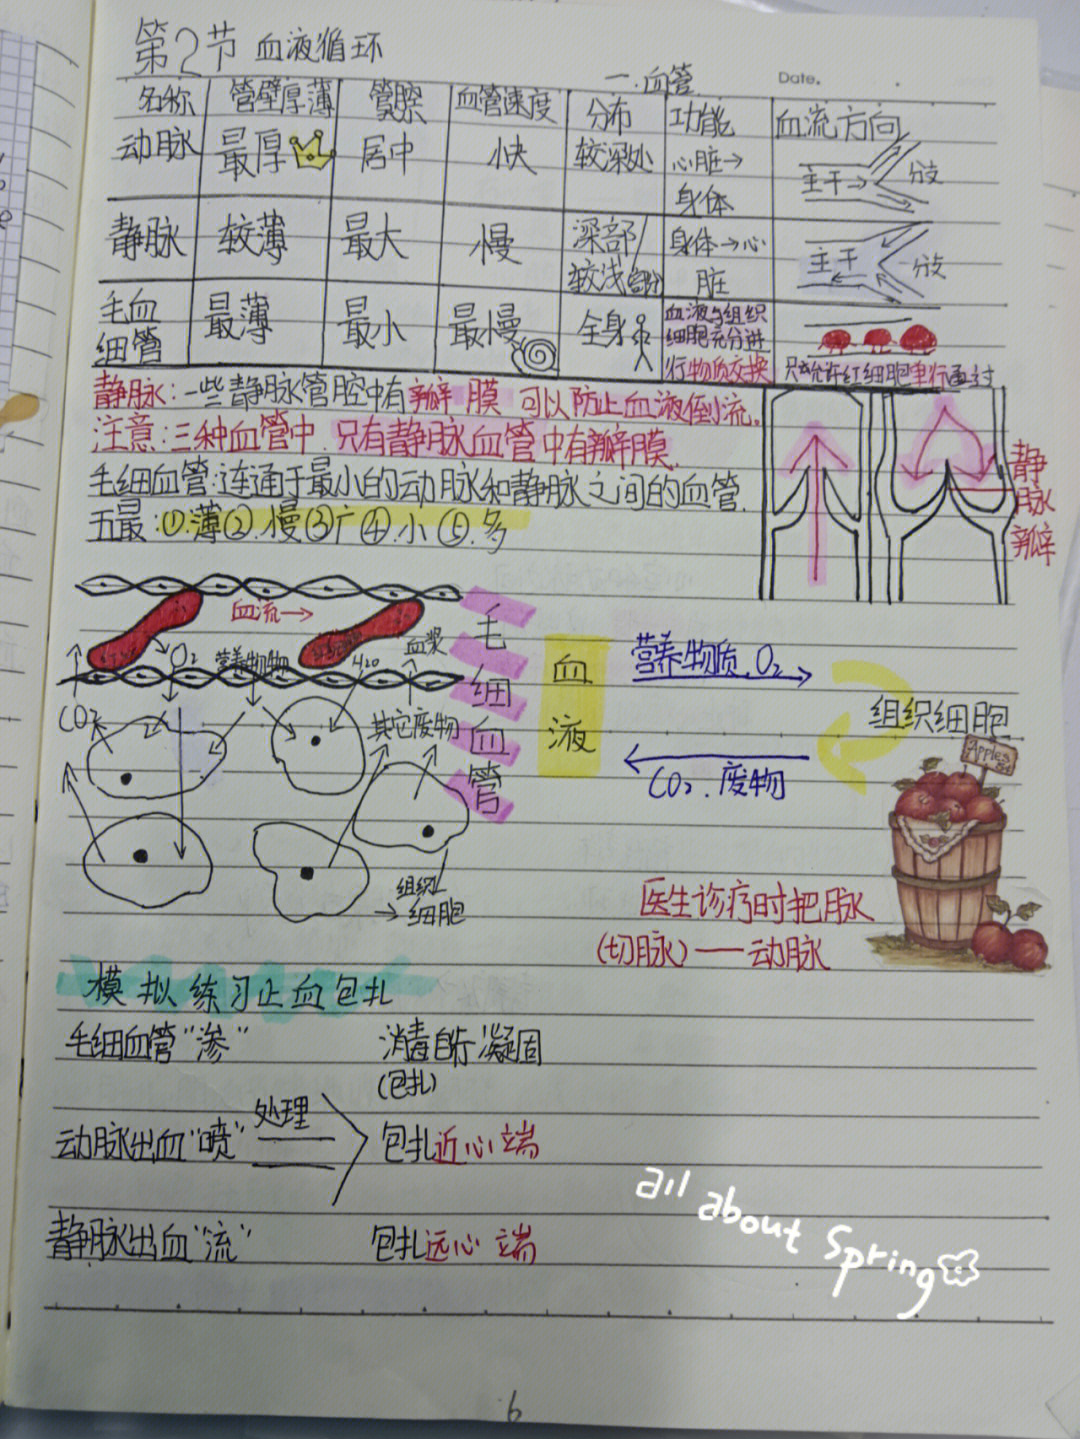 第2节 血液循环
一.血管
Date.
名称 管壁厚薄 管腔 血管速度 分布 功能 血流方向
动脉 最厚 居中 快 较深处 心脏→身体 主干→ 分支
静脉 较薄 最大 慢 深部/较浅部分 身体→心脏 主干← 分支
毛细血管 最薄 最小 最慢 全身 血液与组织细胞充分进行物质交换 只允许红细胞单行通过
静脉:一些静脉管腔中有瓣膜 可以防止血液倒流。
注意:三种血管中,只有静脉血管中有瓣膜.
毛细血管:连通于最小的动脉和静脉之间的血管.
五最:①.薄②.慢③广④.小⑤.多
静脉瓣
血流→
O₂ 营养物物 H₂O 血浆
CO₂ 其它废物
毛细血管
血液
营养物质、O₂
组织细胞
CO₂、废物
Apples
→组织细胞
医生诊疗时把脉
(切脉)——动脉
模拟练习止血包扎
毛细血管“渗” 消毒自行凝固
(包扎)
处理
动脉出血“喷” 包扎近心端
静脉出血“流” 包扎远心端
all about Spring
6